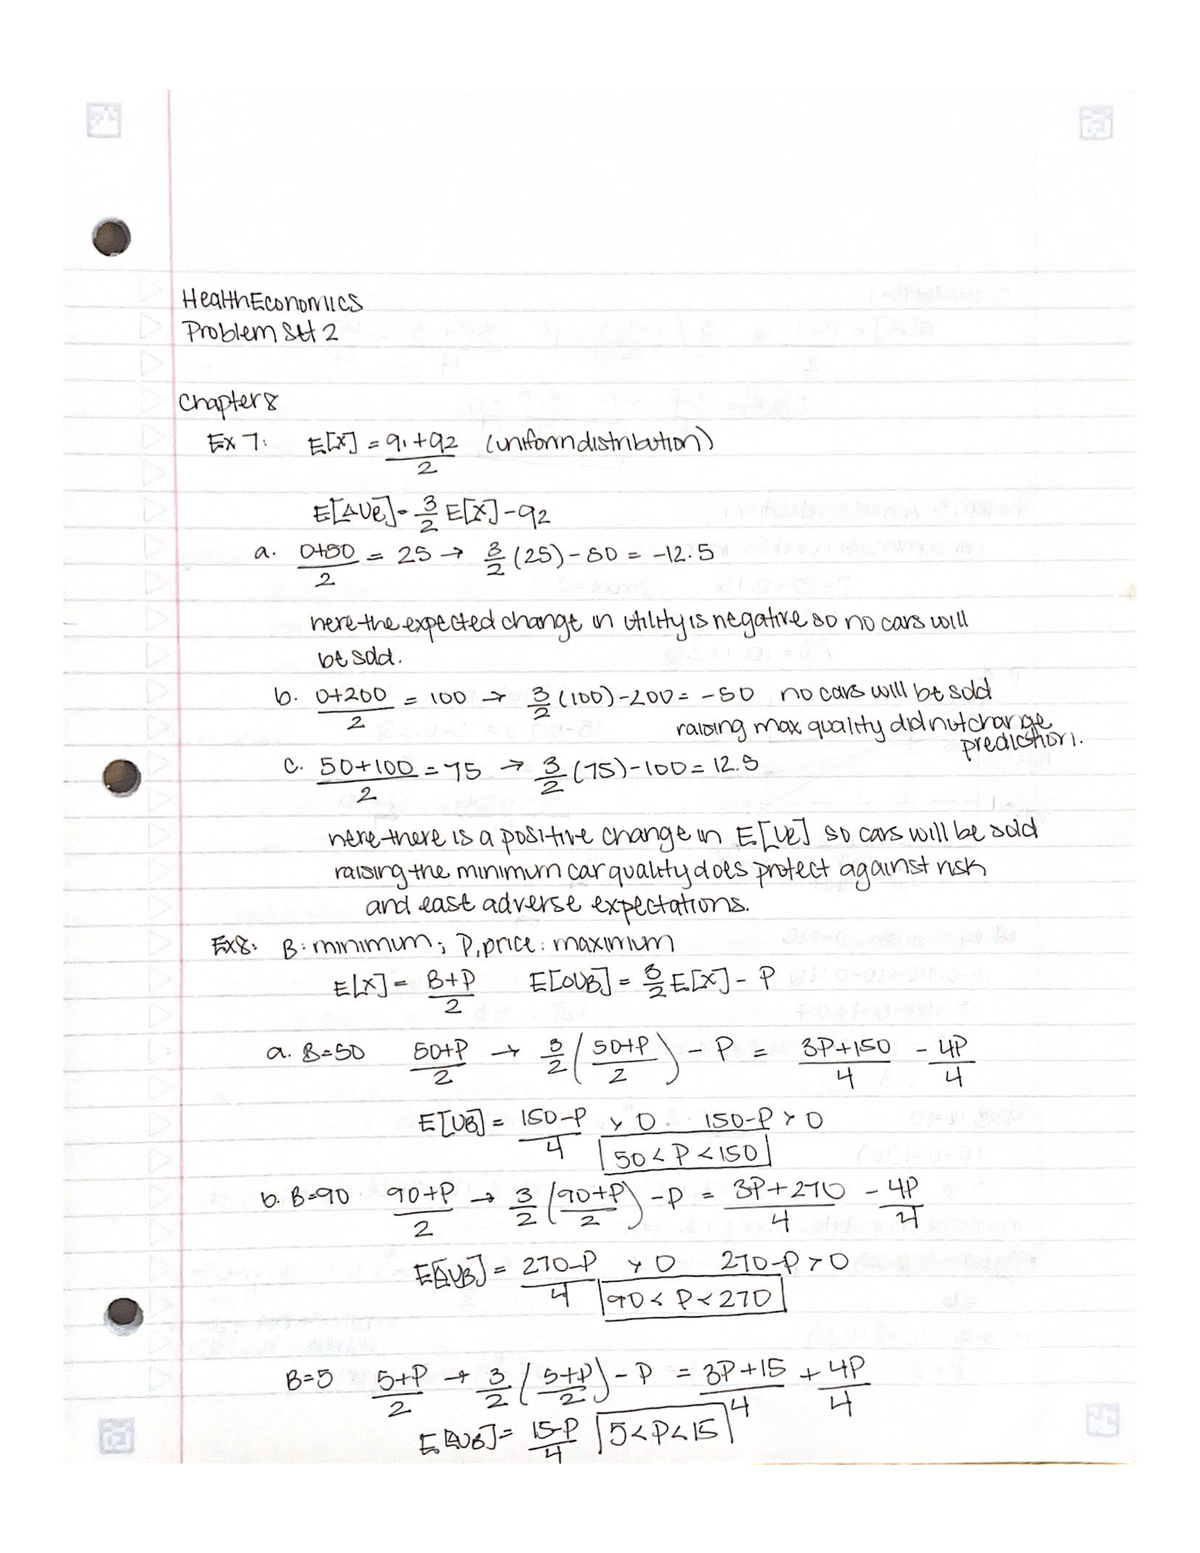 Health Economics
Problem Set 2
Chapter 8
Ex 7: E[X] = q1+q2 / 2 (uniform distribution)
E[ΔUB] = 3/2 E[X] - q2
a. 0+50 / 2 = 25 → 3/2 (25) - 50 = -12.5
here the expected change in utility is negative so no cars will
be sold.
b. 0+200 / 2 = 100 → 3/2 (100) - 200 = -50 no cars will be sold
raising max quality did not change
prediction.
c. 50+100 / 2 = 75 → 3/2 (75) - 100 = 12.5
here there is a positive change in E[UB] so cars will be sold
raising the minimum car quality does protect against risk
and east adverse expectations.
Ex 8: B: minimum; P, price: maximum
E[X] = B+P / 2 E[ΔUB] = 3/2 E[X] - P
a. B=50 50+P / 2 → 3/2 (50+P / 2) - P = 3P+150 / 4 - 4P / 4
E[UB] = 150-P / 4 > 0. 150-P > 0
50 < P < 150
b. B=90 90+P / 2 → 3/2 (90+P / 2) - P = 3P+270 / 4 - 4P / 4
E[ΔUB] = 270-P / 4 > 0 270-P > 0
90 < P < 270
B=5 5+P / 2 → 3/2 (5+P / 2) - P = 3P+15 / 4 + 4P / 4
E[ΔUB] = 15-P / 4 5 < P < 15